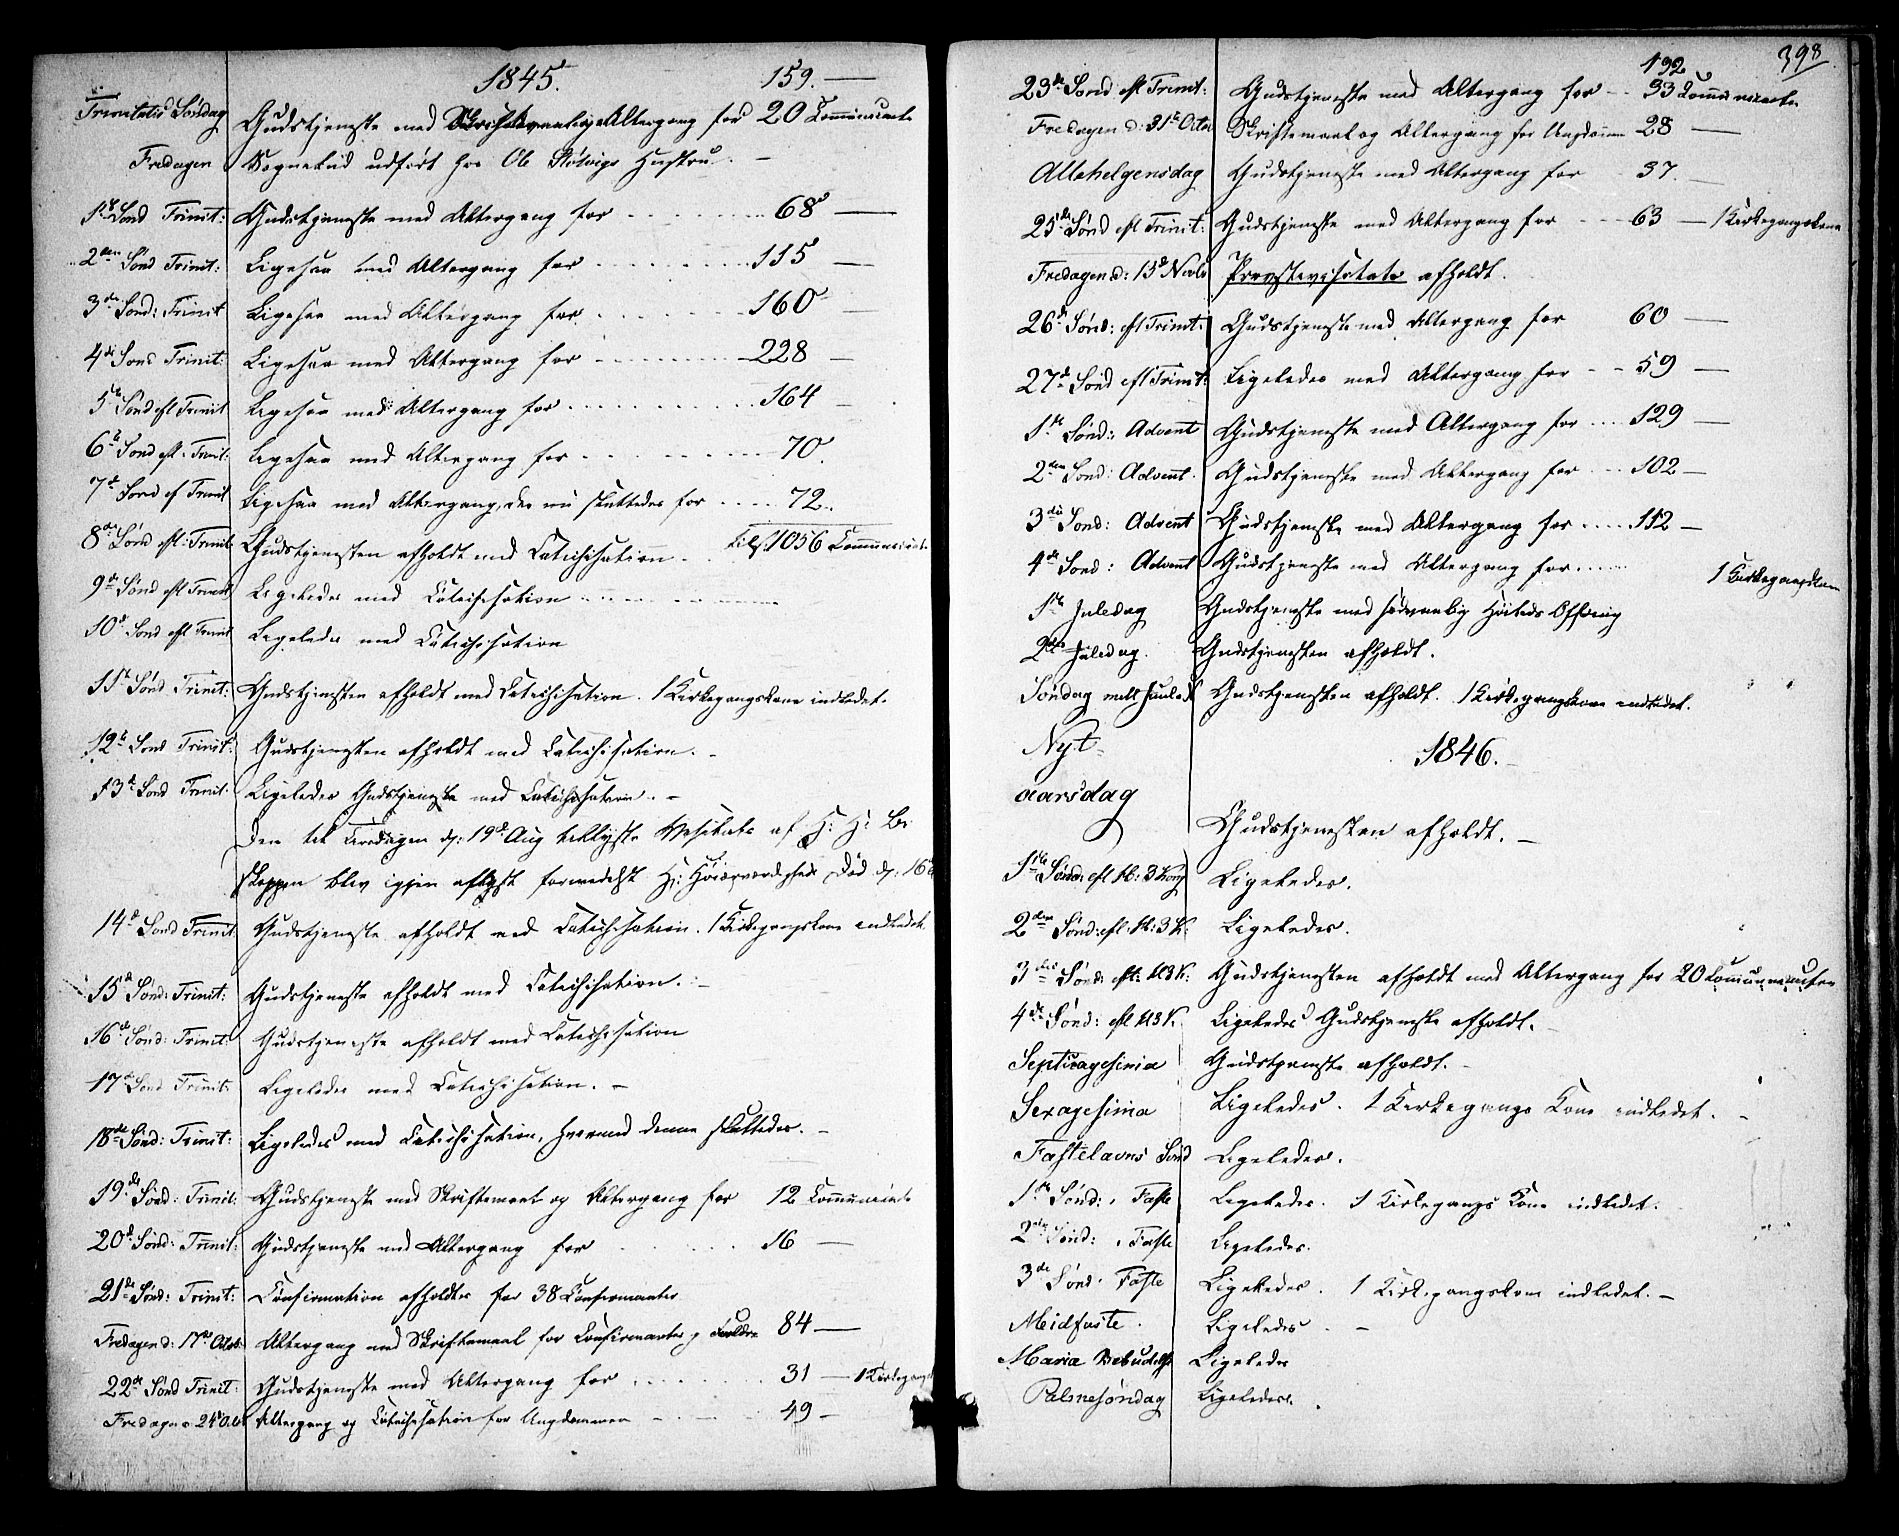 1845. 159. —
Trinitatis Søndag Gudstjeneste med Altergang for 20 Communicante
Fredagen Sognebud udført hos Ole Hustru. —
1ste Sønd Trinit: Gudstjeneste med Altergang for . . . . . . . 68 —
2den Sønd Trinit: Ligesaa med Altergang for . . . . . . . 115 —
3die Sønd: Trinit Ligesaa med Altergang for . . . . . . . 160 —
4de Sønd Trinit: Ligesaa med Altergang for . . . . . . . 228 —
5te Sønd eft Trinit Ligesaa med Altergang for . . . . . . . 164 —
6te Sønd eft. Trinit: Ligesaa med Altergang for . . . . . . . 70.
7de Sønd ef Trinit Ligesaa med Altergang, der nu sluttedes for . . . . 72.
8de Sønd eft. Trinit Gudstjenesten afholdt med Catechisation. tils. 1056 Communicante
9de Sønd eft Trinit Ligeledes med Catechisation
10de Sønd eft Trinit Ligeledes med Catechisation
11te Sønd Trinit: Gudstjenesten afholdt med Catechisation. 1 Kirkegangskone indledet.
12te Sønd Trinit: Gudstjenesten afholdt med Catechisation. —
13de Sønd Trinit: Ligeledes Gudstjeneste med Catechisation. —
Den til Tirsdagen d: 19de Aug tillyste Visitats af H: H: Bi
skoppen blev igjen aflyst formedelst H: Høiærværdigheds Død d: 16de
14de Sønd Trinit Gudstjeneste afholdt med Catechisation. 1 Kirkegangskone indledet
15de Sønd: Trinit: Gudstjeneste afholdt med Catechisation. —
16de Sønd: Trinit: Gudstjeneste afholdt med Catechisation
17de Sønd Trinit: Ligeledes med Catechisation. —
18de Sønd: Trinit: Ligeledes med Catechisation, hvormed denne sluttedes. —
19de Sønd: Trinit: Gudstjeneste med Skriftemaal og Altergang for 12 Communicante
20de Sønd: Trinit: Gudstjeneste med Altergang for . . . . . 16 —
21de Sønd: Trinit: Confirmation afholdtes for 38 Confirmanter
Fredagen d: 17de Octob: Altergang med Skriftemaal for Confirmanter og Forældre 84 —
22de Sønd Trinit: Gudstjeneste med Altergang for . . . . . . 31 — 1 Kirkegang
Fredagen 24de Oct Altergang og Catechisation for Ungdommen . . . . 49 —
398
192
23de Sønd eft Trinit: Gudstjeneste med Altergang for . . 33 Communicante
Fredagen d: 31te Octob Skriftemaal og Altergang for Ungdommen 28 —
Allehelgensdag Gudstjeneste med Altergang for 37. —
25de Sønd eft Trinit: Gudstjeneste med Altergang for . . . 63 — 1 Kirkegangskone
Fredagen d: Novbr Provstevisitats afholdt.
26de Sønd: eft Trinit: Gudstjeneste med Altergang for 60 —
27de Sønd eft Trinit: Ligeledes med Altergang for . . 59 —
1ste Sønd: Advent Gudstjeneste med Altergang for . . . 129 —
2den Sønd: Advent. Gudstjeneste med Altergang for . . . 102 —
3die Sønd: Advent Gudstjeneste med Altergang for . . . . 112 —
4de Sønd: Advent Gudstjeneste med Altergang for . . . . . 1 Kirkegangskone
1ste Juledag Gudstjeneste med sædvanlig Høitids Offring
2den Juledag. Gudstjenesten afholdt.
Søndag mell Gudstjenesten afholdt. 1 Kirkegangskone indledet.
Nyt- 1846. —
aarsdag
Gudstjenesten afholdt. —
1ste Sønd: eft H: 3 Kong Ligeledes.
2den Sønd: eft: H: 3 K: Ligeledes.
3die Sønd: eft: H 3 K: Gudstjenesten afholdt med Altergang for 20 Communicanter
4de Sønd: eft H 3 K. Ligeledes Gudstjeneste afholdt.
Septuagesima Gudstjeneste afholdt. —
Sexagesima Ligeledes. 1 Kirkegangs Kone indledet. —
Fastelavns Sønd Ligeledes.
1ste Sønd: i Faste Ligeledes. 1 Kirkegangs Kone indledet.
2den Sønd: i Faste Ligeledes.
3die Sønd: Faste Ligeledes. 1 Kirkegangskone indledet. —
Meidfaste. Ligeledes. —
Maria Bebudelse Ligeledes
Palmesøndag Ligeledes.